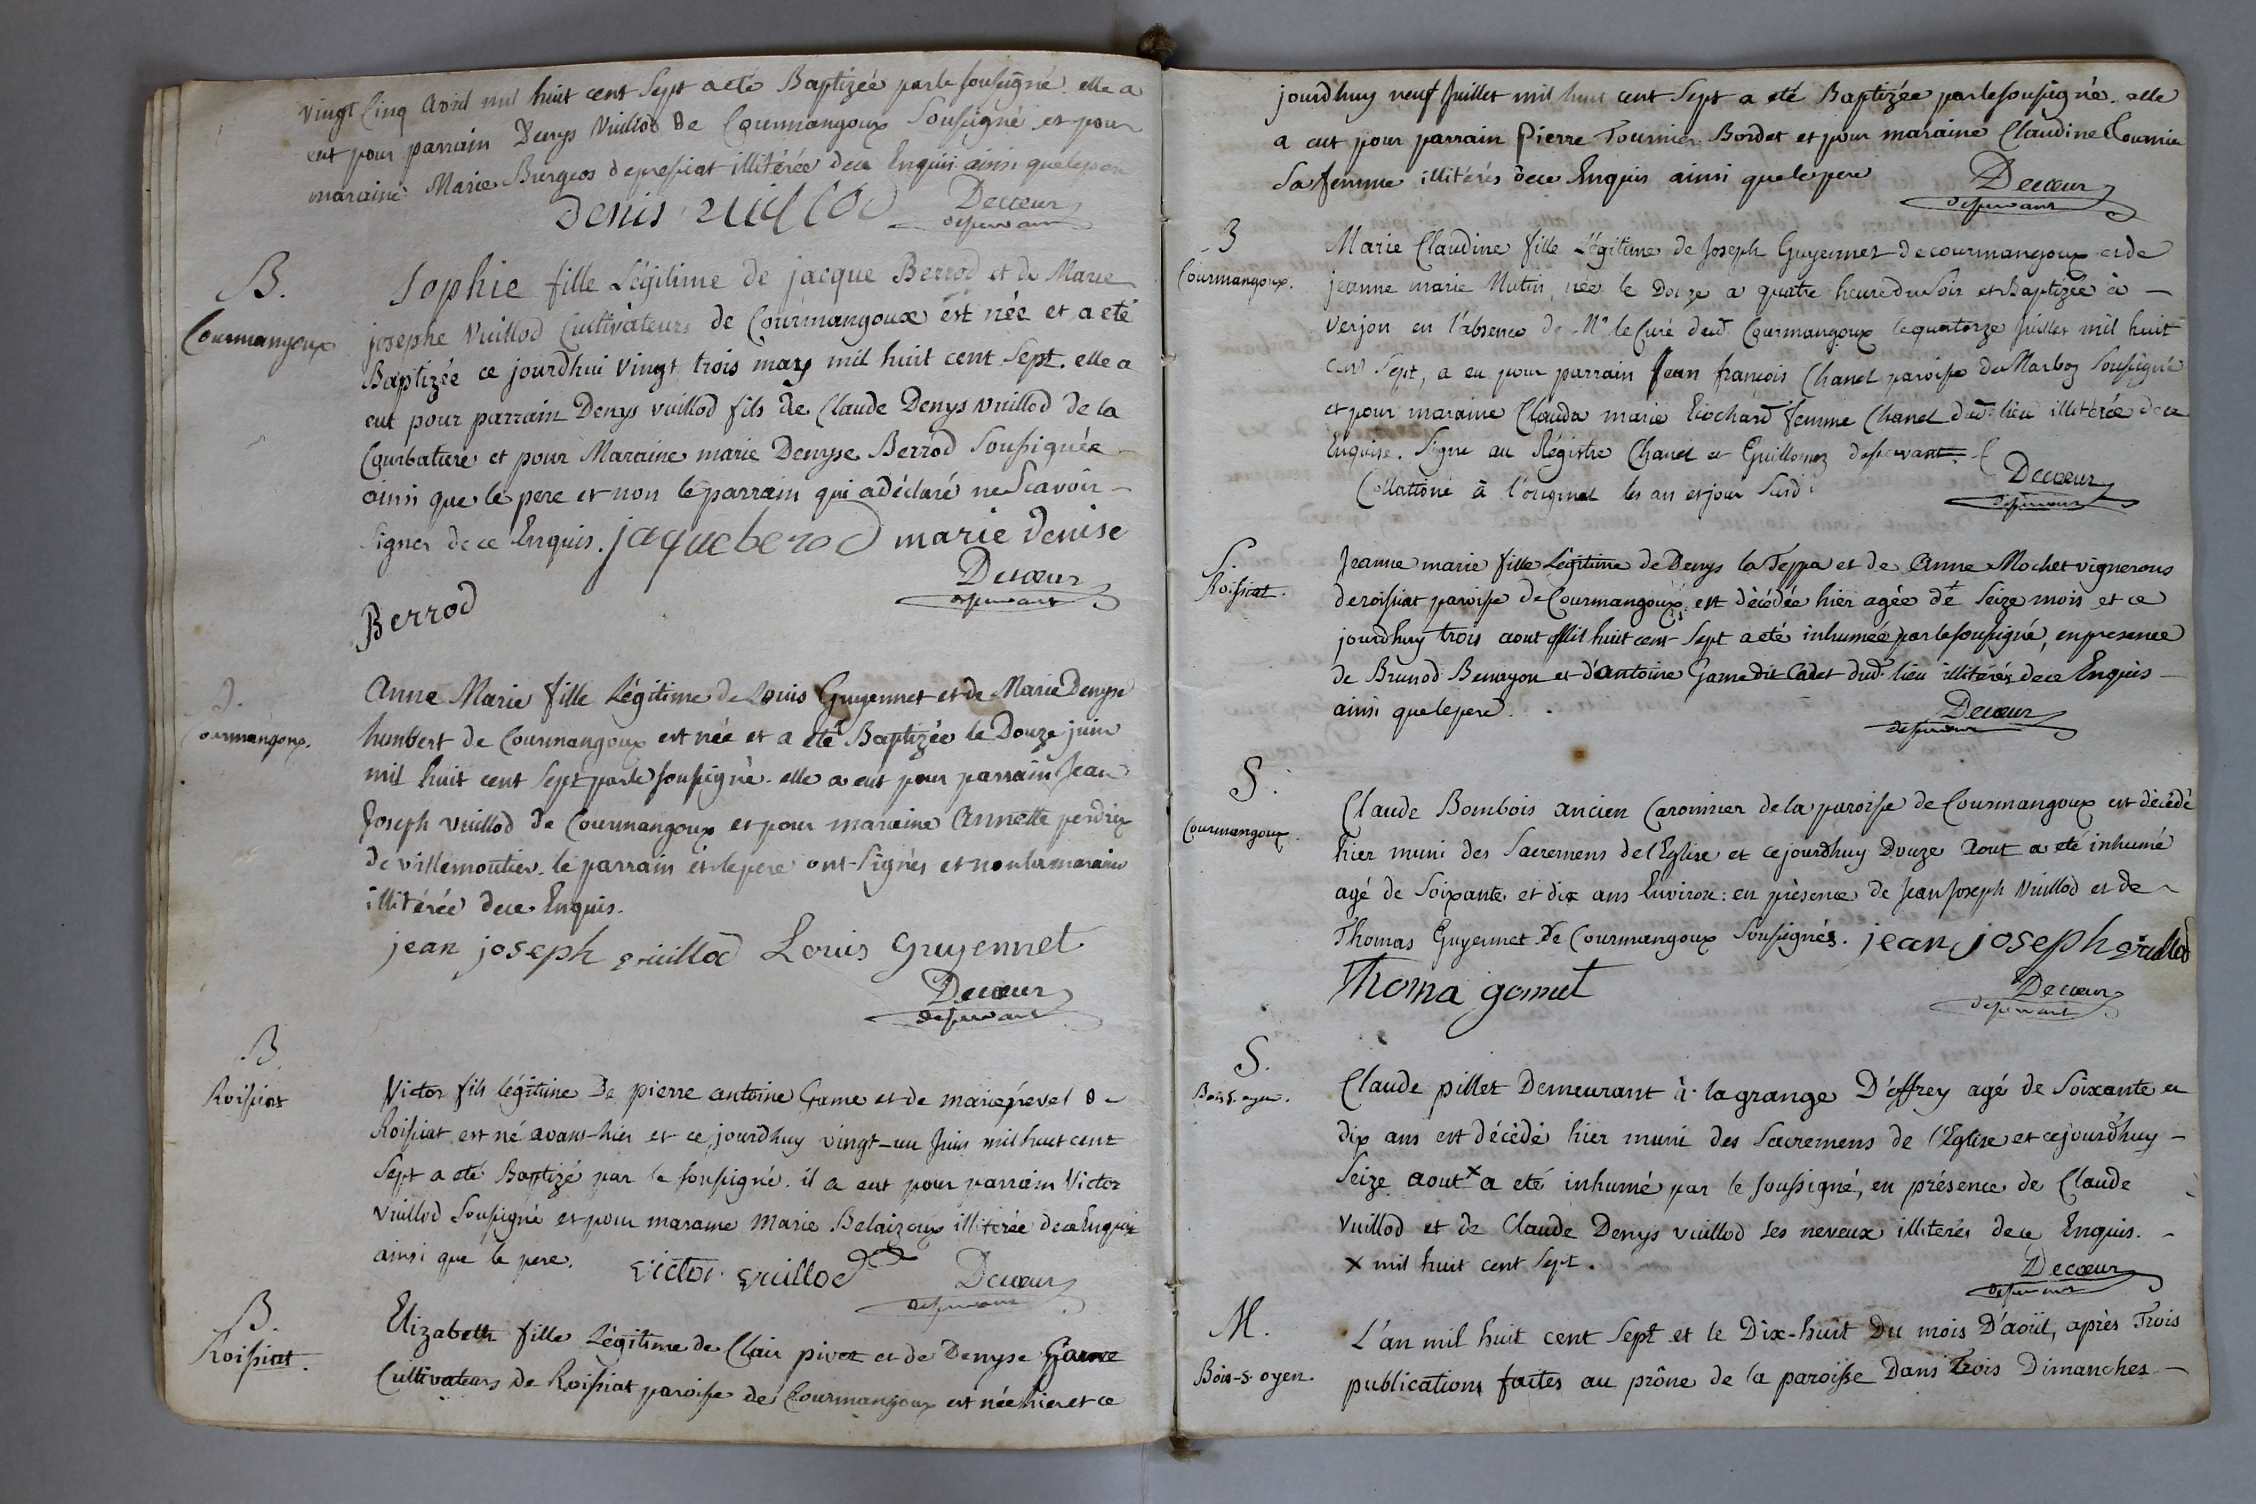 vingt Cinq avril mil huit cent Sept a eté Baptizée par le soussigné. elle a
eut pour parrain Denys Vuillod de Courmangoux Soussigné et pour
maraine Marie Burgeos de pressiat illitérée de ce Enquis ainsi que le pere
Denis vuillod Decœur
desservant
B.
Courmangoux
Sophie fille Légitime de jacque Berrod et de Marie
josephe Vuillod Cultivateurs de Courmangoux est née et a eté
Baptizée ce jourdhui vingt trois mars mil huit cent Sept. elle a
eut pour parrain Denys vuillod fils de Claude Denys vuillod de la
Courbature et pour Maraine marie Denyse Berrod Soussignée
ainsi que le pere et non le parrain qui a déclaré ne Scavoir -
signer de ce Enquis. jaque berod marie denise
Decœur
desservant
Berrod
Courmangoux.
Anne Marie fille Légitime de Louis Guyennet et de Marie Denyse
humbert de Courmangoux est née et a eté Baptizée le Douze juin
mil huit cent Sept par le soussigné. elle a eut pour parrain Jean
Joseph vuillod de Courmangoux et pour maraine Annette perdrix
de villemoutier. le parrain et le pere ont Signés et non la maraine
illitérée de ce Enquis.
jean joseph vuillod Louis Guyennet
Decœur
desservant
B
Roissiat
Victor fils légitime De pierre antoine Game et de marie pevet D -
Roissiat est né avant-hier et ce jourdhuy vingt-un Juin mil huit cent
Sept a eté Baptizé par le soussigné. il a eut pour parrain Victor
Vuillod Soussigné et pour maraine Marie Belaizoux illitérée de ce Enquis
ainsi que le pere. victor vuillod Decœur
desservant
B.
Roissiat.
Elizabeth fille Légitime de Clair pivet et de Denyse Game
Cultivateurs de Roissiat paroisse de Courmangoux est née hier et ce
jourdhuy neuf Juillet mil huit cent Sept a eté Baptizée par le soussigné. elle
a eut pour parrain Pierre Tournier Bordet et pour maraine Claudine Tournier
Sa femme illitérés de ce Enquis ainsi que le pere Decœur
desservant
B
Courmangoux.
Marie Claudine fille Légitime de Joseph Guyennet de courmangoux et de
jeanne marie Mutin, née le Douze a quatre heure du Soir et Baptizée à -
Verjon en l'absence de Mr le Curé dud. Courmangoux le quatorze Juillet mil huit
cent Sept, a eu pour parrain Jean françois Chanel paroisse de Marboz Soussigné
et pour maraine Clauda marie Riochard femme Chanel dud. lieu illitérée de ce
Enquise. Signé au Régistre Chanel et Guillomez desservant.
Collationé à l'original les an et jour Susd. Decœur
desservant
S.
Roissiat.
Jeanne marie fille Légitime de Denys la Teppa et de Anne Mochet vignerons
de roissiat paroisse de Courmangoux, est décédée hier agée de Seize mois et ce
jourdhuy trois aout Mil huit cent Sept a eté inhumée par le soussigné, en presence
de Brunod Benayon et d'antoine Game dit Cadet dud. lieu illitérés de ce Enquis -
ainsi que le pere. Decœur
desservant
S.
Courmangoux.
Claude Bombois ancien Caronnier de la paroisse de Courmangoux est décédé
hier muni des Sacremens de l'Eglise et ce jourdhuy Douze Aout a eté inhumé
agé de Soixante et dix ans Environ: en présence de Jean Joseph Vuillod et de
Thomas Guyennet de Courmangoux Soussignés. jean joseph vuillod
Thoma gonnet
Decœur
desservant
S.
Bois-S. oyen.
Claude pillet Demeurant à la grange D'effrey agé de Soixante et
dix ans est décédé hier muni des Sacremens de l'Eglise et ce jourd'huy -
Seize aout x a eté inhumé par le soussigné, en présence de Claude
Vuillod et de Claude Denys vuillod ses neveux illiterés de ce Enquis. -
x mil huit cent Sept.
Decœur
desservant
M.
Bois-S. oyen.
L'an mil huit cent Sept et le Dix-huit Du mois D'août, après Trois
publications faites au prône de la paroisse Dans Trois Dimanches -